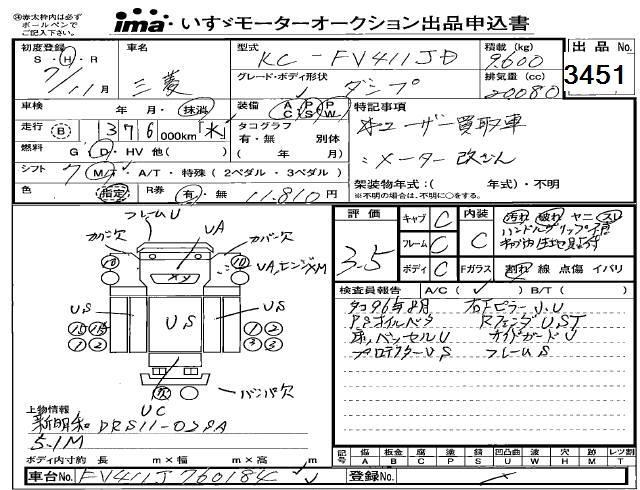 ※赤太枠内は必ず
ボールペンで
ご記入下さい。
ima いすゞモーターオークション出品申込書
初度登録 車名 型式 積載 (kg) 出品No.
S・H・R 三菱 KC-FV411JD 9600
7/11月 グレード・ボディ形状 ダンプ 排気量 (cc) 20080
3451
車検 年・月・抹消 装備 AC PS PW 特記事項
走行 B 1376 000km 水 タコグラフ 有・無 別体 ( 年 月) ユーザー買取車
燃料 G・D・HV 他( ) メーター改ざん
シフト 7 MT・A/T・特殊 (2ペダル・3ペダル) 架装物年式:( 年式)・不明
※不明の場合は、不明に○をする。
色 指定 R券 有・無 11.810円
評価 3.5
キャブ C 内装 C 汚れ 破れ ヤニ スレ
フレーム C
ボディ C Fガラス 割れ 線 点傷 イバリ
フレームU
カバー欠 UA カバー欠
UA,エンジンM
US US US
バンパ欠
UC
検査員報告 A/C ( ✓ ) B/T ( )
タコ96年8月
PSオイルベタ RフェンダUST
ベッセルU サイドガードU
プロテクターUS フレームS
上物情報
新明和 DRS11-02PA
5.1M
ボディ内寸約 長 m×幅 m×高 m
記号 傷A 板金B 腐C 凹P 塗P 錆S 凹凸曲U 波W 穴H 跡M レツ割T
車台No. FV411J760184C
登録No.